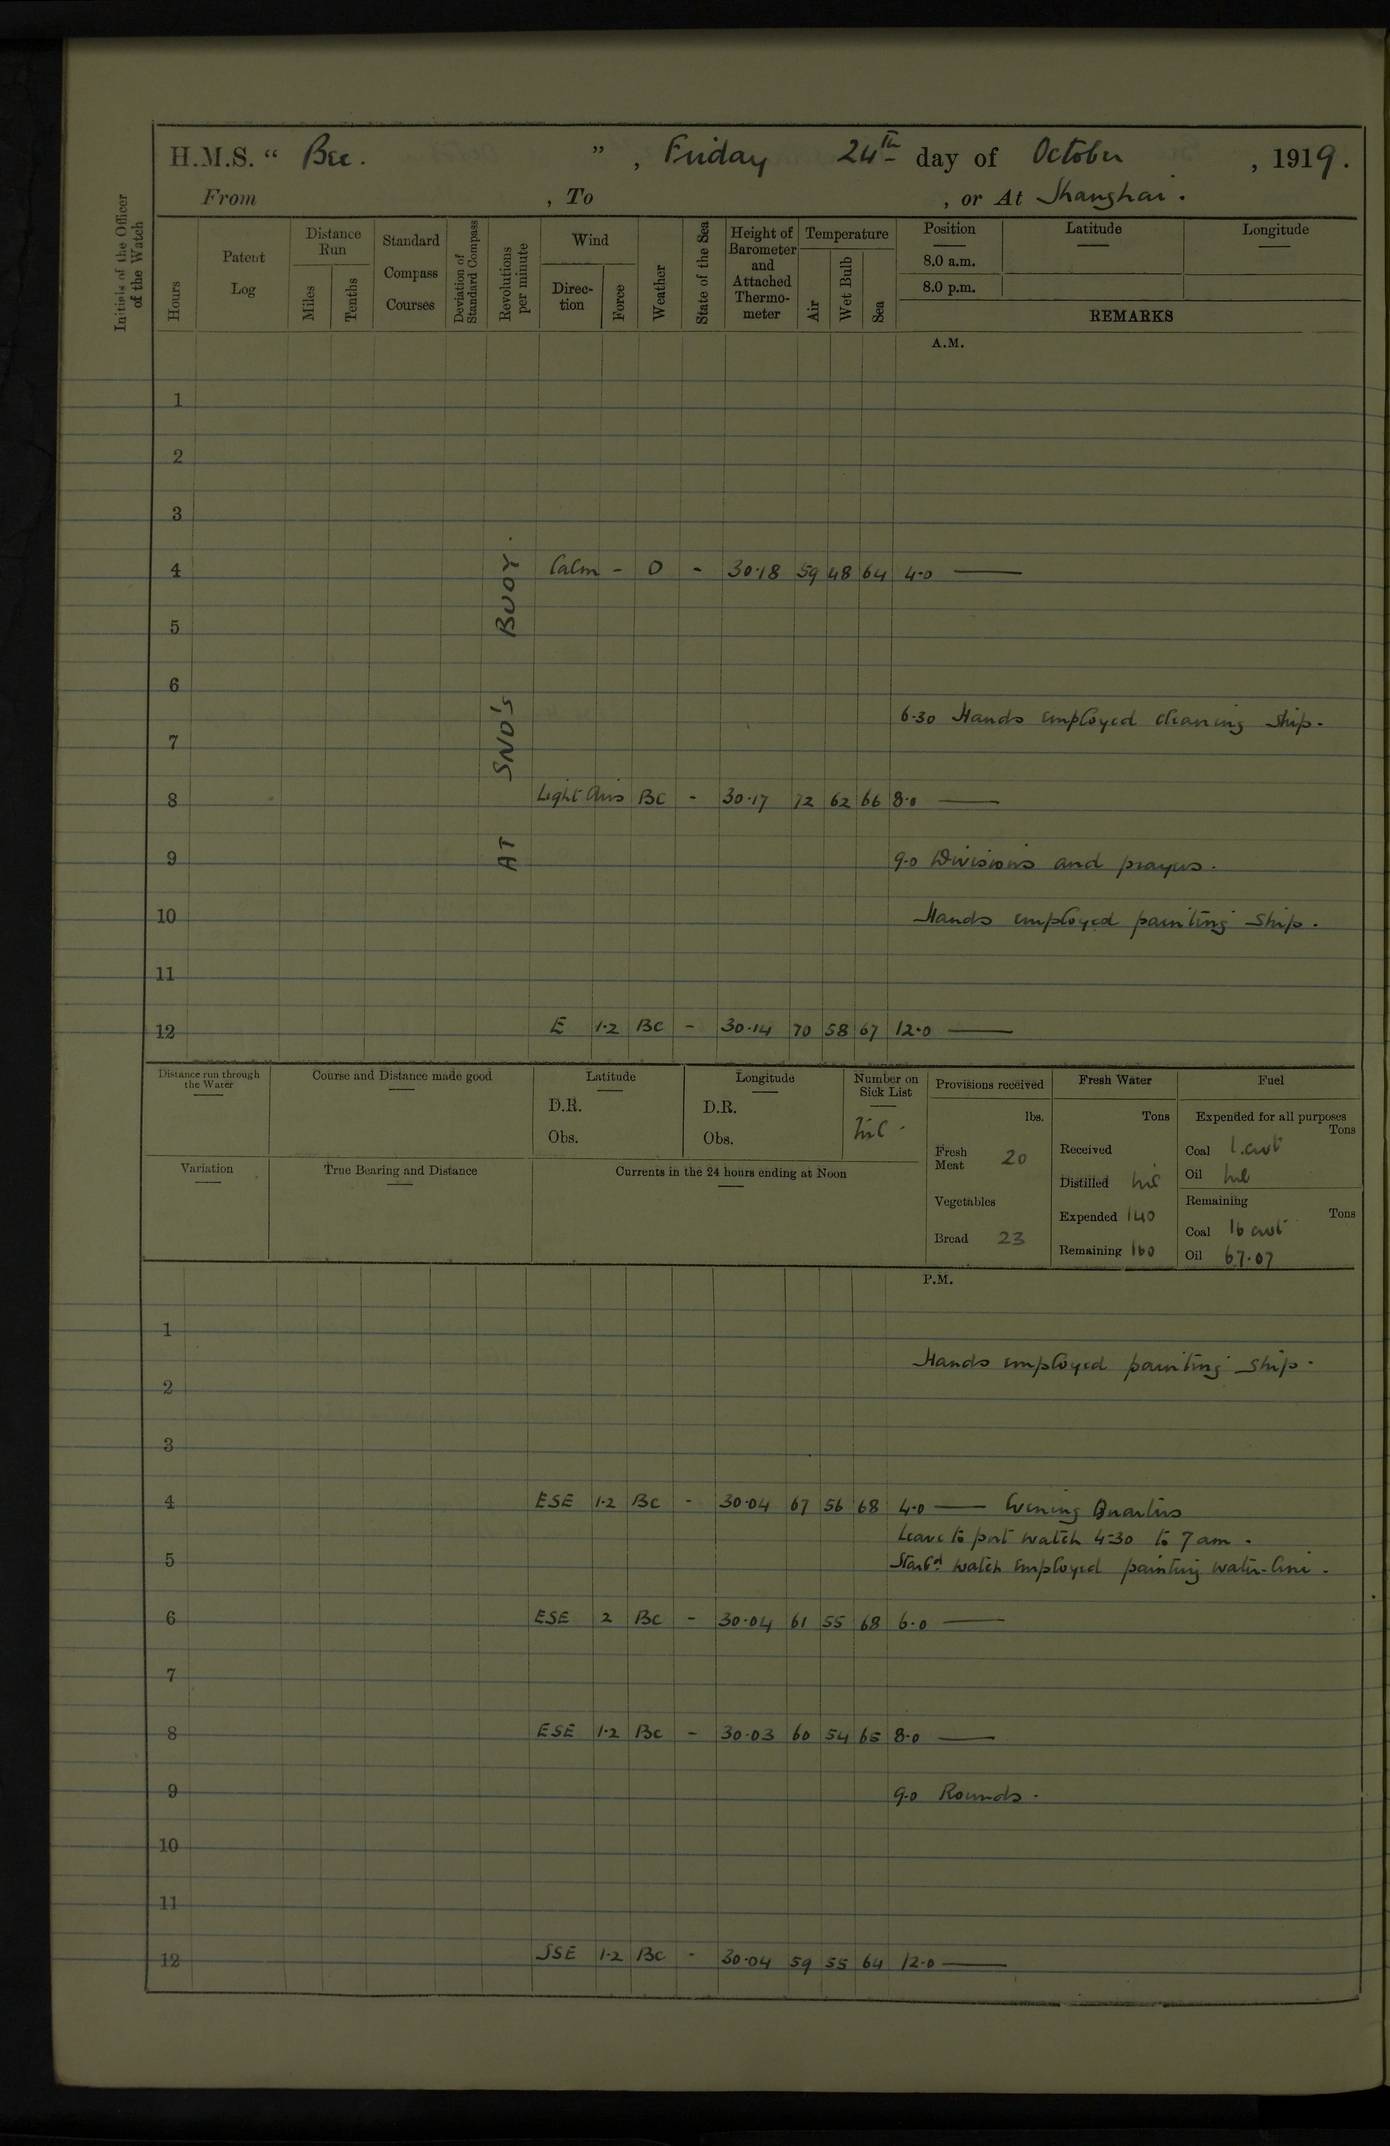 H.M.S. “ Bee. ” , Friday 24th day of October , 1919.
From , To , or At Shanghai.
Initials of the Officer of the Watch
Hours
Patent Log
Distance Run
Miles
Tenths
Standard Compass Courses
Deviation of Standard Compass
Revolutions per minute
Wind
Direction
Force
Weather
State of the Sea
Height of Barometer and Attached Thermometer
Temperature
Air
Wet Bulb
Sea
Position Latitude Longitude
8.0 a.m.
8.0 p.m.
REMARKS
A.M.
AT SNO's BUOY.
1
2
3
4 Calm - O - 30.18 59 48 64 4.0 ——
5
6
6.30 Hands employed cleaning ship.
7
8 Light Airs BC - 30.17 72 62 66 8.0 ——
9 9.0 Divisions and prayers.
10 Hands employed painting ship.
11
12 E 1.2 BC - 30.14 70 58 67 12.0 ——
Distance run through the Water
Course and Distance made good
Latitude
D.R.
Obs.
Longitude
D.R.
Obs.
Number on Sick List
Nil.
Variation
True Bearing and Distance
Currents in the 24 hours ending at Noon
Provisions received
lbs.
Fresh Meat 20
Vegetables
Bread 23
Fresh Water
Tons
Received
Distilled nil
Expended 140
Remaining 160
Fuel
Expended for all purposes
Tons
Coal 1.cwt
Oil nil
Remaining
Tons
Coal 16 cwt
Oil 67.07
P.M.
1
Hands employed painting ship.
2
3
4 ESE 1.2 BC - 30.04 67 56 68 4.0 —— Evening Quarters
Leave to port watch 4-30 to 7 am.
5 Starbd watch employed painting water-line.
6 ESE 2 BC - 30.04 61 55 68 6.0 ——
7
8 ESE 1.2 BC - 30.03 60 54 65 8.0 ——
9 9.0 Rounds.
10
11
12 SSE 1.2 BC - 30.04 59 55 64 12.0 ——